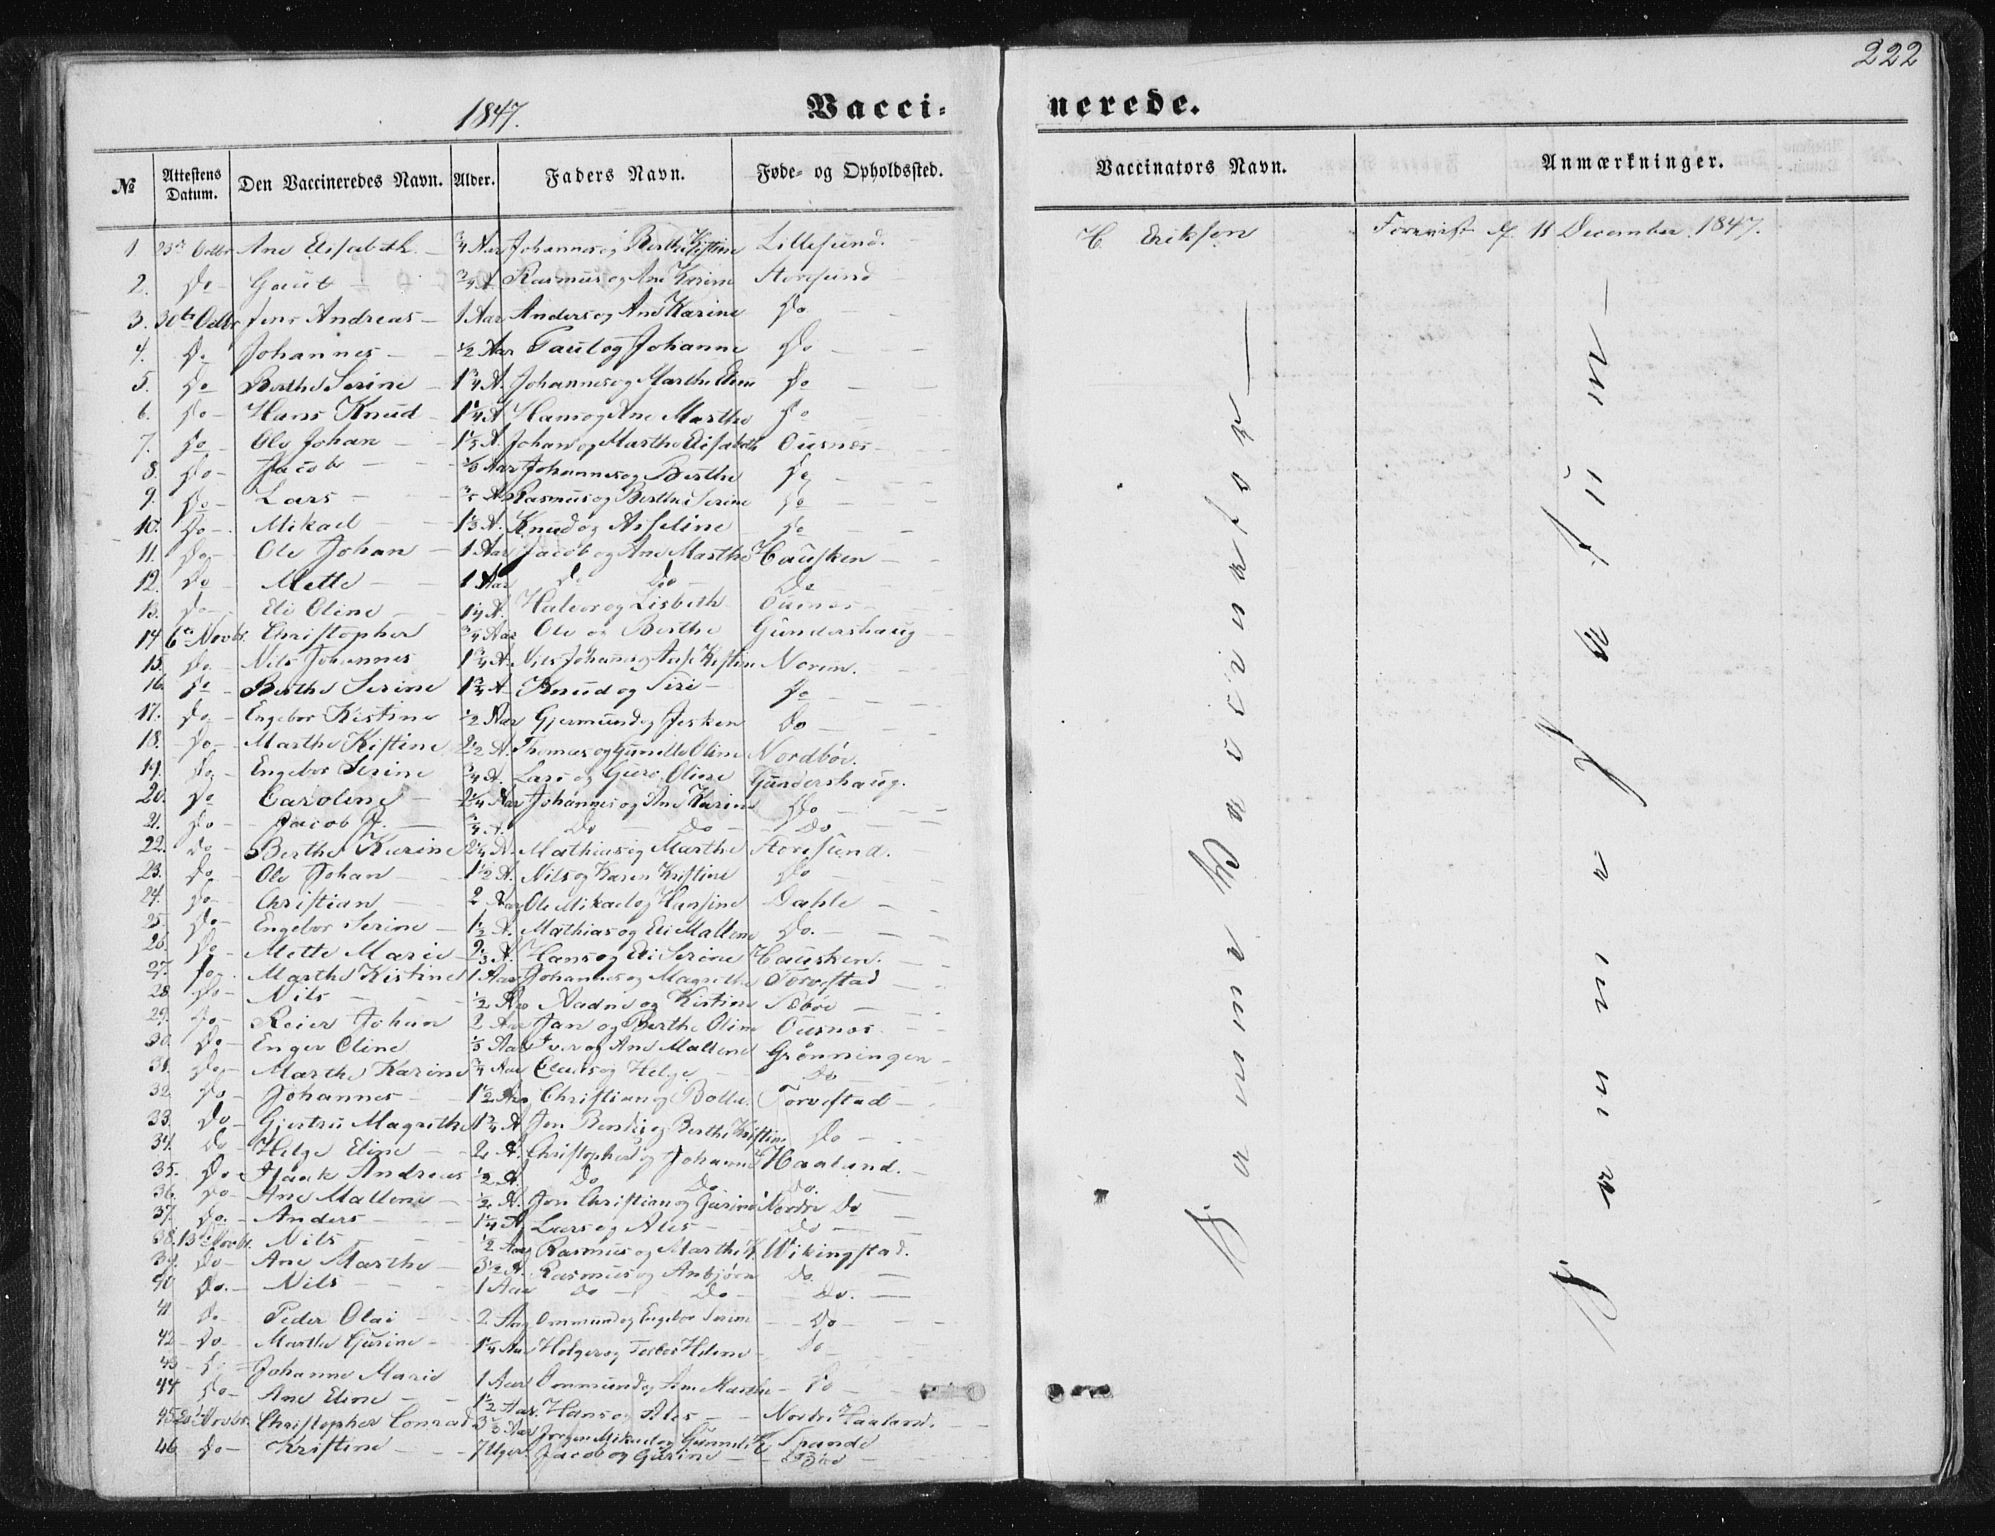 222
1847. Vacci- nerede.
№ Attestens Datum. Den Vaccineredes Navn. Alder. Faders Navn. Føde- og Opholdssted. Vaccinators Navn. Anmærkninger.
1 23de Octbr Ane Elisabeth ¾ Aar Johannes og Berthe Kistine Lillesund. C Eriksen Foreviist d. 11 December 1847.
2. Do Gaut ¾ A Rasmus og Ane Karine Storesund
3. 30te Octbr Jens Andreas 1 Aar Anders og Ane Karine Do
4. Do Johannes ½ Aar Paul og Johanne Do
5. Do Berthe Serine 1¾ A. Johannes og Marthe Do
6. Do Hans Knud 1¼ A Hans og Ane Marthe Do
7. Do Ole Johan A. Johan og Marthe Elisabeth Ousnes
8. Do Jacob Aar Johannes og Berthe Do
9. Do Lars A. Rasmus og Berthe Serine Do
10. Do Mikael A. Knud og Asseline Do
11. Do Ole Johan 1 Aar Jacob og Ane Marthe Hausken
12. Do Mette 1 Aar Do Do Do
13. Do Eli Oline 1¼ A. Halvor og Lisbeth Ousnes
14 6te Novbr. Christopher ¾ Aar Ole og Berthe Gundershaug
15. Do Nils Johannes 1¾ A. Nils Johan og Kistine Norem.
16. Do Berthe Serine 1¾ A Knud og Siri Do
17. Do Engebor Kistine ½ Aar Gjermund og Jesken Do
18. Do Marthe Kistine 2½ A. Thomas og Gunille Oline Nordbøe.
19. Do Engebor Serine ¾ A. Lars og Guro Oline Gundershaug.
20. Do Caroline 2¼ Aar Johannes og Ane Karine Do
21. Do Jacob J. ¾ A. Do Do Do
22. Do Berthe Karine 2¼ A. Mathias og Marthe Storesund.
23. Do Ole Johan 1½ A. Nils og Karen Kristine Do
24. Do Christian 2 Aar Ole Mikael og Hansine Dahle
25. Do Engebor Serine ½ A. Mathias og Eli Mallene Do.
26. Do Mette Marie A. Hans og Eli Serine Hausken.
27. Do Marthe Kistine 1 Aar Johannes og Magrethe Torvestad
28. Do Nils ½ Aar og Kistine
29. Do Reier Johan 2 Aar Jan og Berthe Oline Ousnes
30. Do Enger Oline Aar Iver og Ane Mallene Grønningen
31. Do Marthe Karine ¾ Aar og Helge Do
32. Do Johannes 1½ Aar Christian og Torvestad
33. Do Gjertru Magrethe 1¾ A Jon og Berthe Kristine Do
34. Do Helge Eline 2 A. Christopher og Johanne Haaland.
35. Do Isaak Andreas ½ A. Do Do Do.
36. Do Ane Mallene ½ A. Jon Christian og Gurine Nordre Do
37. Do. Anders 1¼ A. Lars og Ales Do
38. 13de Novbr. Nils ½ Aar Rasmus og Marthe K Wikingstad.
39. Do Ane Marthe 3½ A. Rasmus og Anbjørn Do.
40 Do. Nils 1 Aar Do Do Do.
41 Do Peder Olai 2 Aar Ommund og Engebor Serine Do
42 Do Marthe Gurine 1¼ Aar Holger og Helene Do
43 Do Johanne Marie 1 Aar Ommund og Ane Marthe Do
44 Do Ane Eline 1½ Aar. Hans og Ales Nordre Haaland.
45 Novbr. Christopher Conrad Aar Jørgen Mikael og Gunnild K
46. Do Kristine 7 Uger. Jacob og Gurine
Samme Vaccinator
Samme Datum